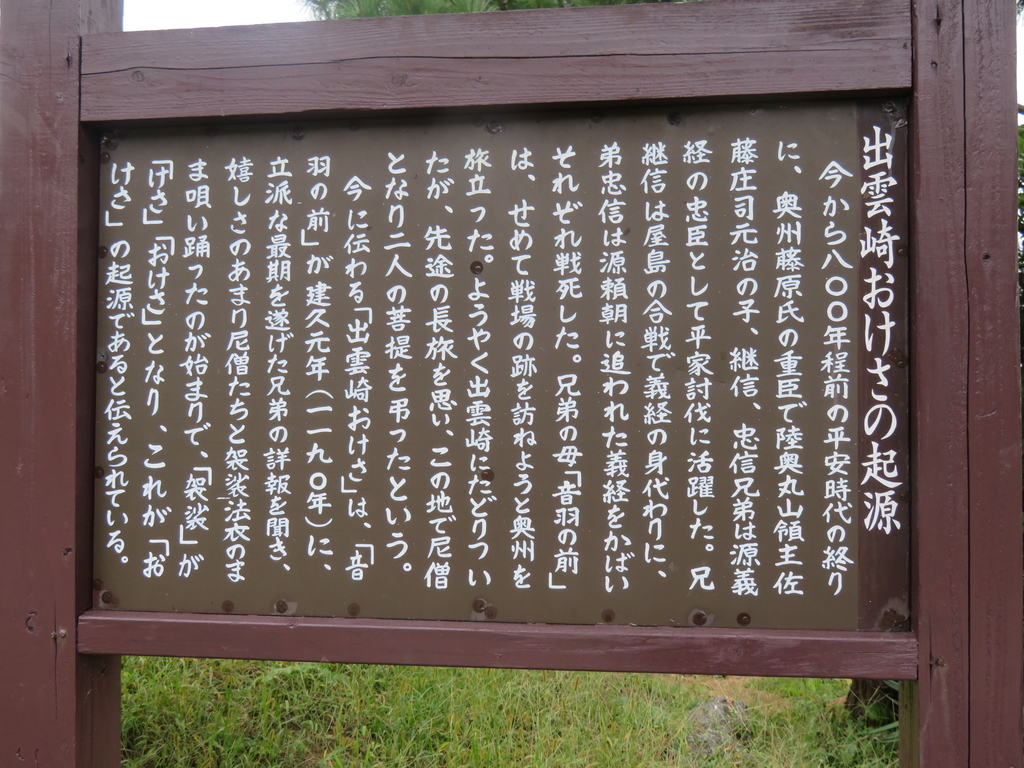 出雲崎おけさの起源
今から八〇〇年程前の平安時代の終り
に、奥州藤原氏の重臣で陸奥丸山領主佐
藤庄司元治の子、継信、忠信兄弟は源義
経の忠臣として平家討伐に活躍した。兄
継信は屋島の合戦で義経の身代わりに、
弟忠信は源頼朝に追われた義経をかばい
それぞれ戦死した。兄弟の母「音羽の前」
は、せめて戦場の跡を訪ねようと奥州を
旅立った。ようやく出雲崎にたどりつい
たが、先途の長旅を思い、この地で尼僧
となり二人の菩提を弔ったという。
今に伝わる「出雲崎おけさ」は、「音
羽の前」が建久元年(一一九〇年)に、
立派な最期を遂げた兄弟の詳報を聞き、
嬉しさのあまり尼僧たちと袈裟法衣のま
ま唄い踊ったのが始まりで、「袈裟」が
「けさ」「おけさ」となり、これが「お
けさ」の起源であると伝えられている。